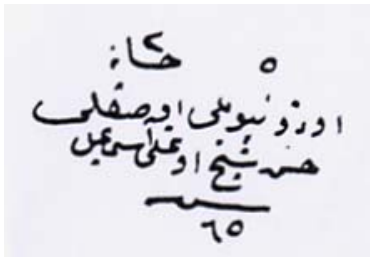 ٥ خانه ٢
اوزون بويلى اق صقلى
حسن شيخ اوغلى اسمعيل
سن
٦٥